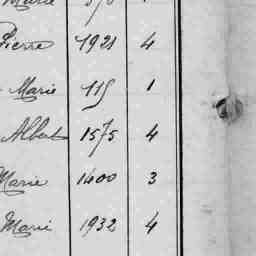 Marie
Pierre 1921 4
Marie 115 1
Albert 1575 4
Marie 1400 3
Marie 1932 4